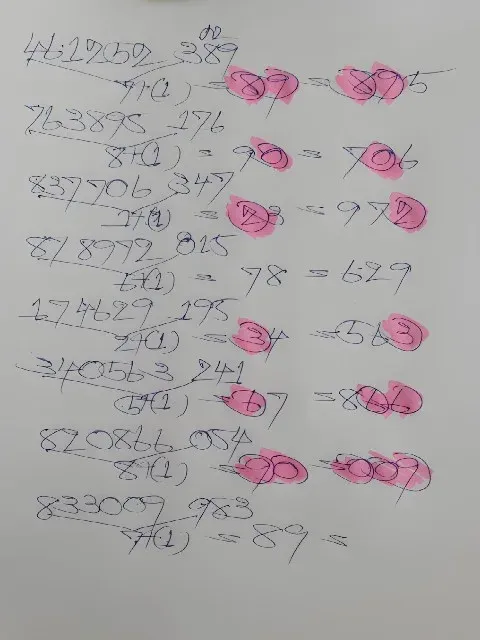 461752 389
7+(1) = 89 = 895
763895 176
8+(1) = 90 = 706
837706 347
1+(1) = 23 = 972
818972 815
6+(1) = 78 = 629
174629 195
2+(1) = 34 = 563
340563 241
5+(1) = 67 = 866
820866 054
8+(1) = 90 = 009
833009 983
7+(1) = 89 =